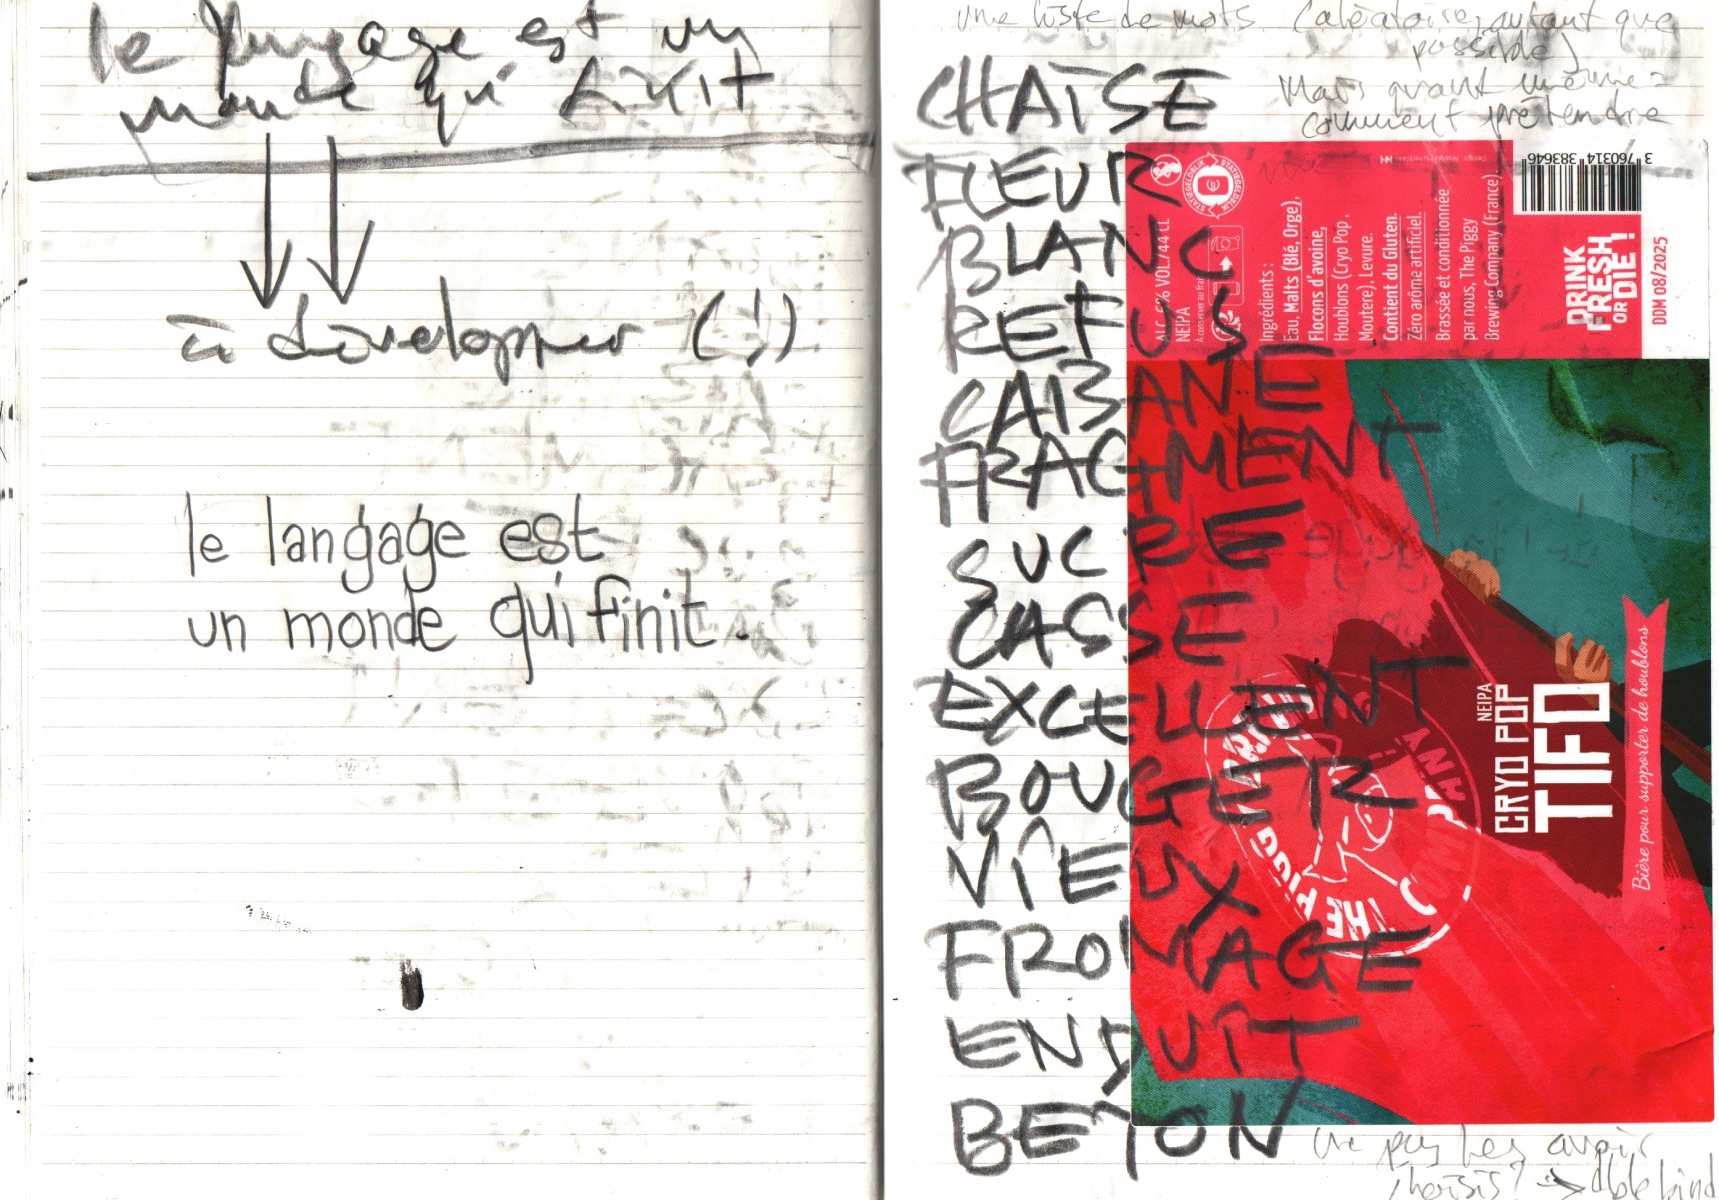 le langage est un
monde qui
à développer (!)
le langage est
un monde qui finit.
une liste de mots (aléatoire, autant que
possible)
Mais quant même :
comment prétendre
CHAISE
FLEUR
BLANC
REFUS
CABANE
FRAGMENT
SUCRE
CASSE
EXCELLENT
BOUGER
VIEUX
FROMAGE
ENDUIT
BETON
ne pas les avoir
choisis? → dble bind
STATIEGELDBLIK STATIEGELDBLIK
ALC. 6% VOL/44 CL
NEIPA
Ingrédients :
Eau, Malts (Blé, Orge),
Flocons d'avoine,
Houblons (Cryo Pop,
Moutere), Levure.
Contient du Gluten.
Zéro arôme artificiel.
Brassée et conditionnée
par nous, The Piggy
Brewing Company (France).
3 760314 383646
DRINK
FRESH
OR DIE!
DDM 08/2025
THE PIGGY BREWING COMPANY
NEIPA
CRYO POP
TIFO
Bière pour supporter de houblons